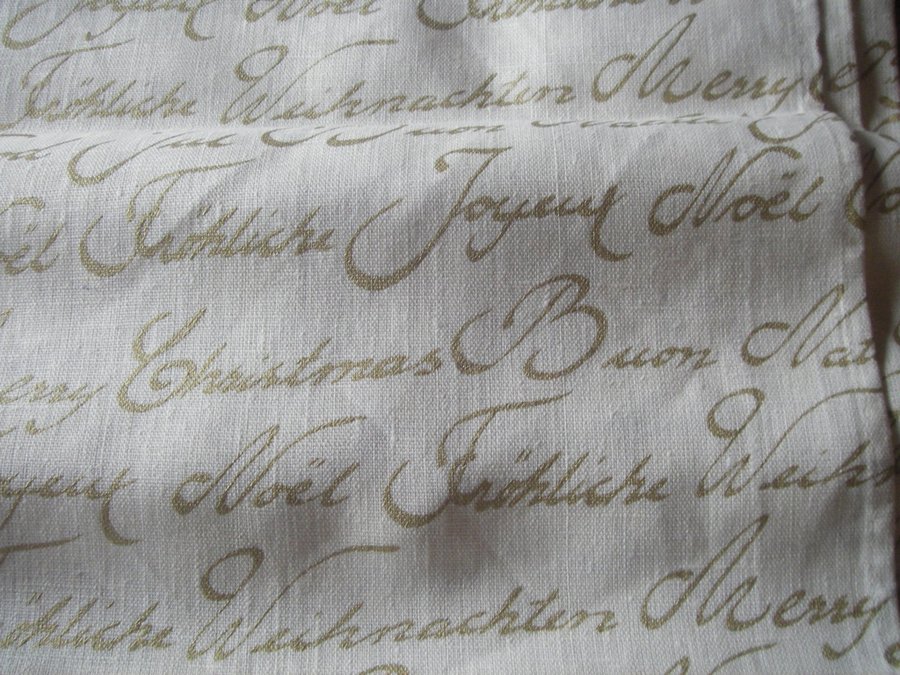 Joyeux Noël Fröhliche
Fröhliche Weihnachten Merry
God Jul Buon
Noël Fröhliche Joyeux Noël
Merry Christmas Buon Nat
Joyeux Noël Fröhliche Weihn
Fröhliche Weihnachten Merry